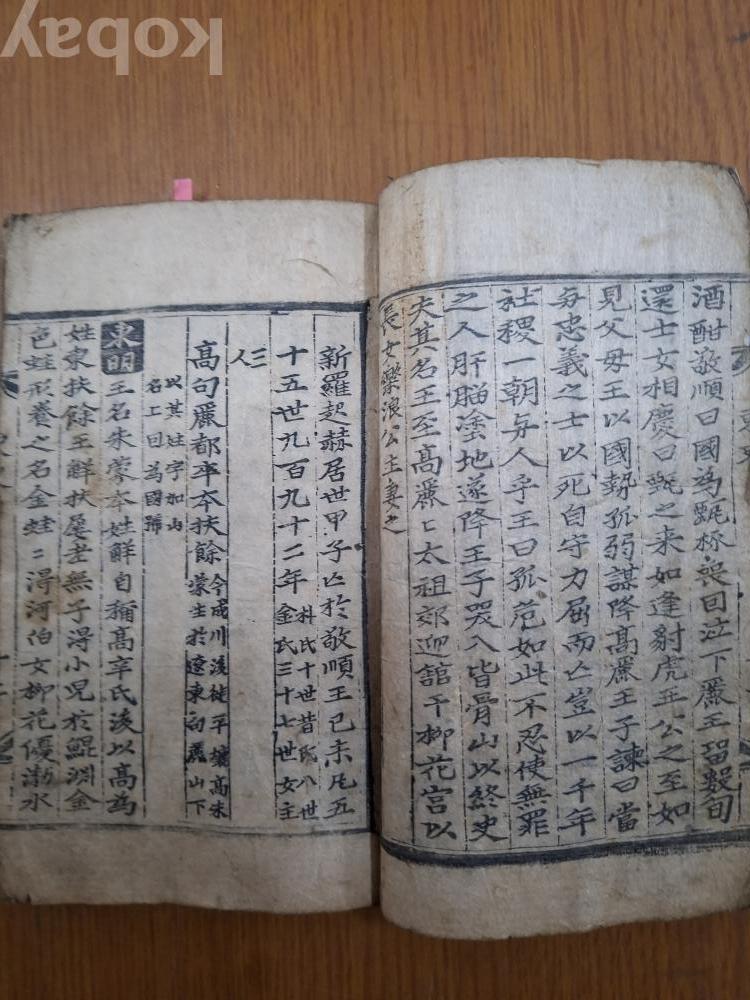 kobay
酒酣敬順曰國為甄桥喪回泣下麗王留數旬
還士女相慶曰甄之来如逢豺虎王公之至如
見父母王以國勢孤弱謀降高麗王子諫曰當
与忠義之士以死自守力屈而亡豈以一千年
社稷一朝与人乎王曰孤危如此不忍使無罪
之人肝脳塗地遂降王子哭入皆骨山以終史
夫其名王至高麗〻太祖郊迎舘于柳花宮以
長女樂浪公主妻之
新羅起赫居世甲子亡於敬順王已未凡五
十五世九百九十二年 朴氏十世昔氏八世
金氏三十七世女主
三人
高句麗都卒本扶餘 今成川後徙平壤高朱
蒙生於遼東句麗山下
以其姓字加山
名上曰為國號
東明 王名朱蒙本姓觧自稱高辛氏後以高為
姓東扶餘王觧扶婁老無子淂小児於鯤渊金
色蛙形養之名金蛙〻淂河伯女柳花優渤水